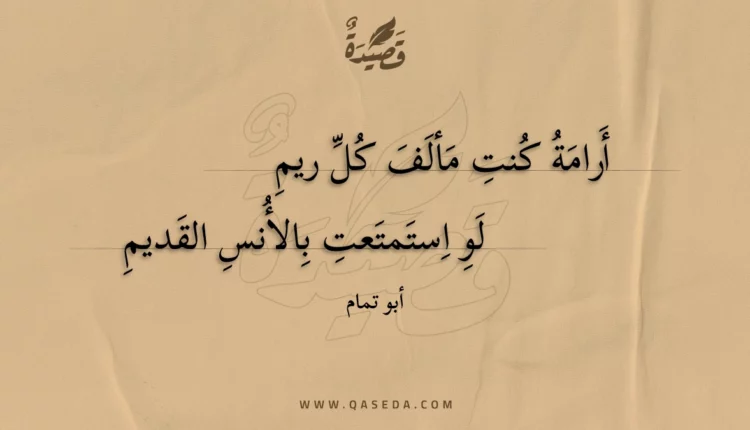 قَصِيدَةٌ
أَرامَةُ كُنتِ مَألَفَ كُلِّ ريمِ
لَوِ اِستَمتَعتِ بِالأُنسِ القَديمِ
أبو تمام
WWW.QASEDA.COM